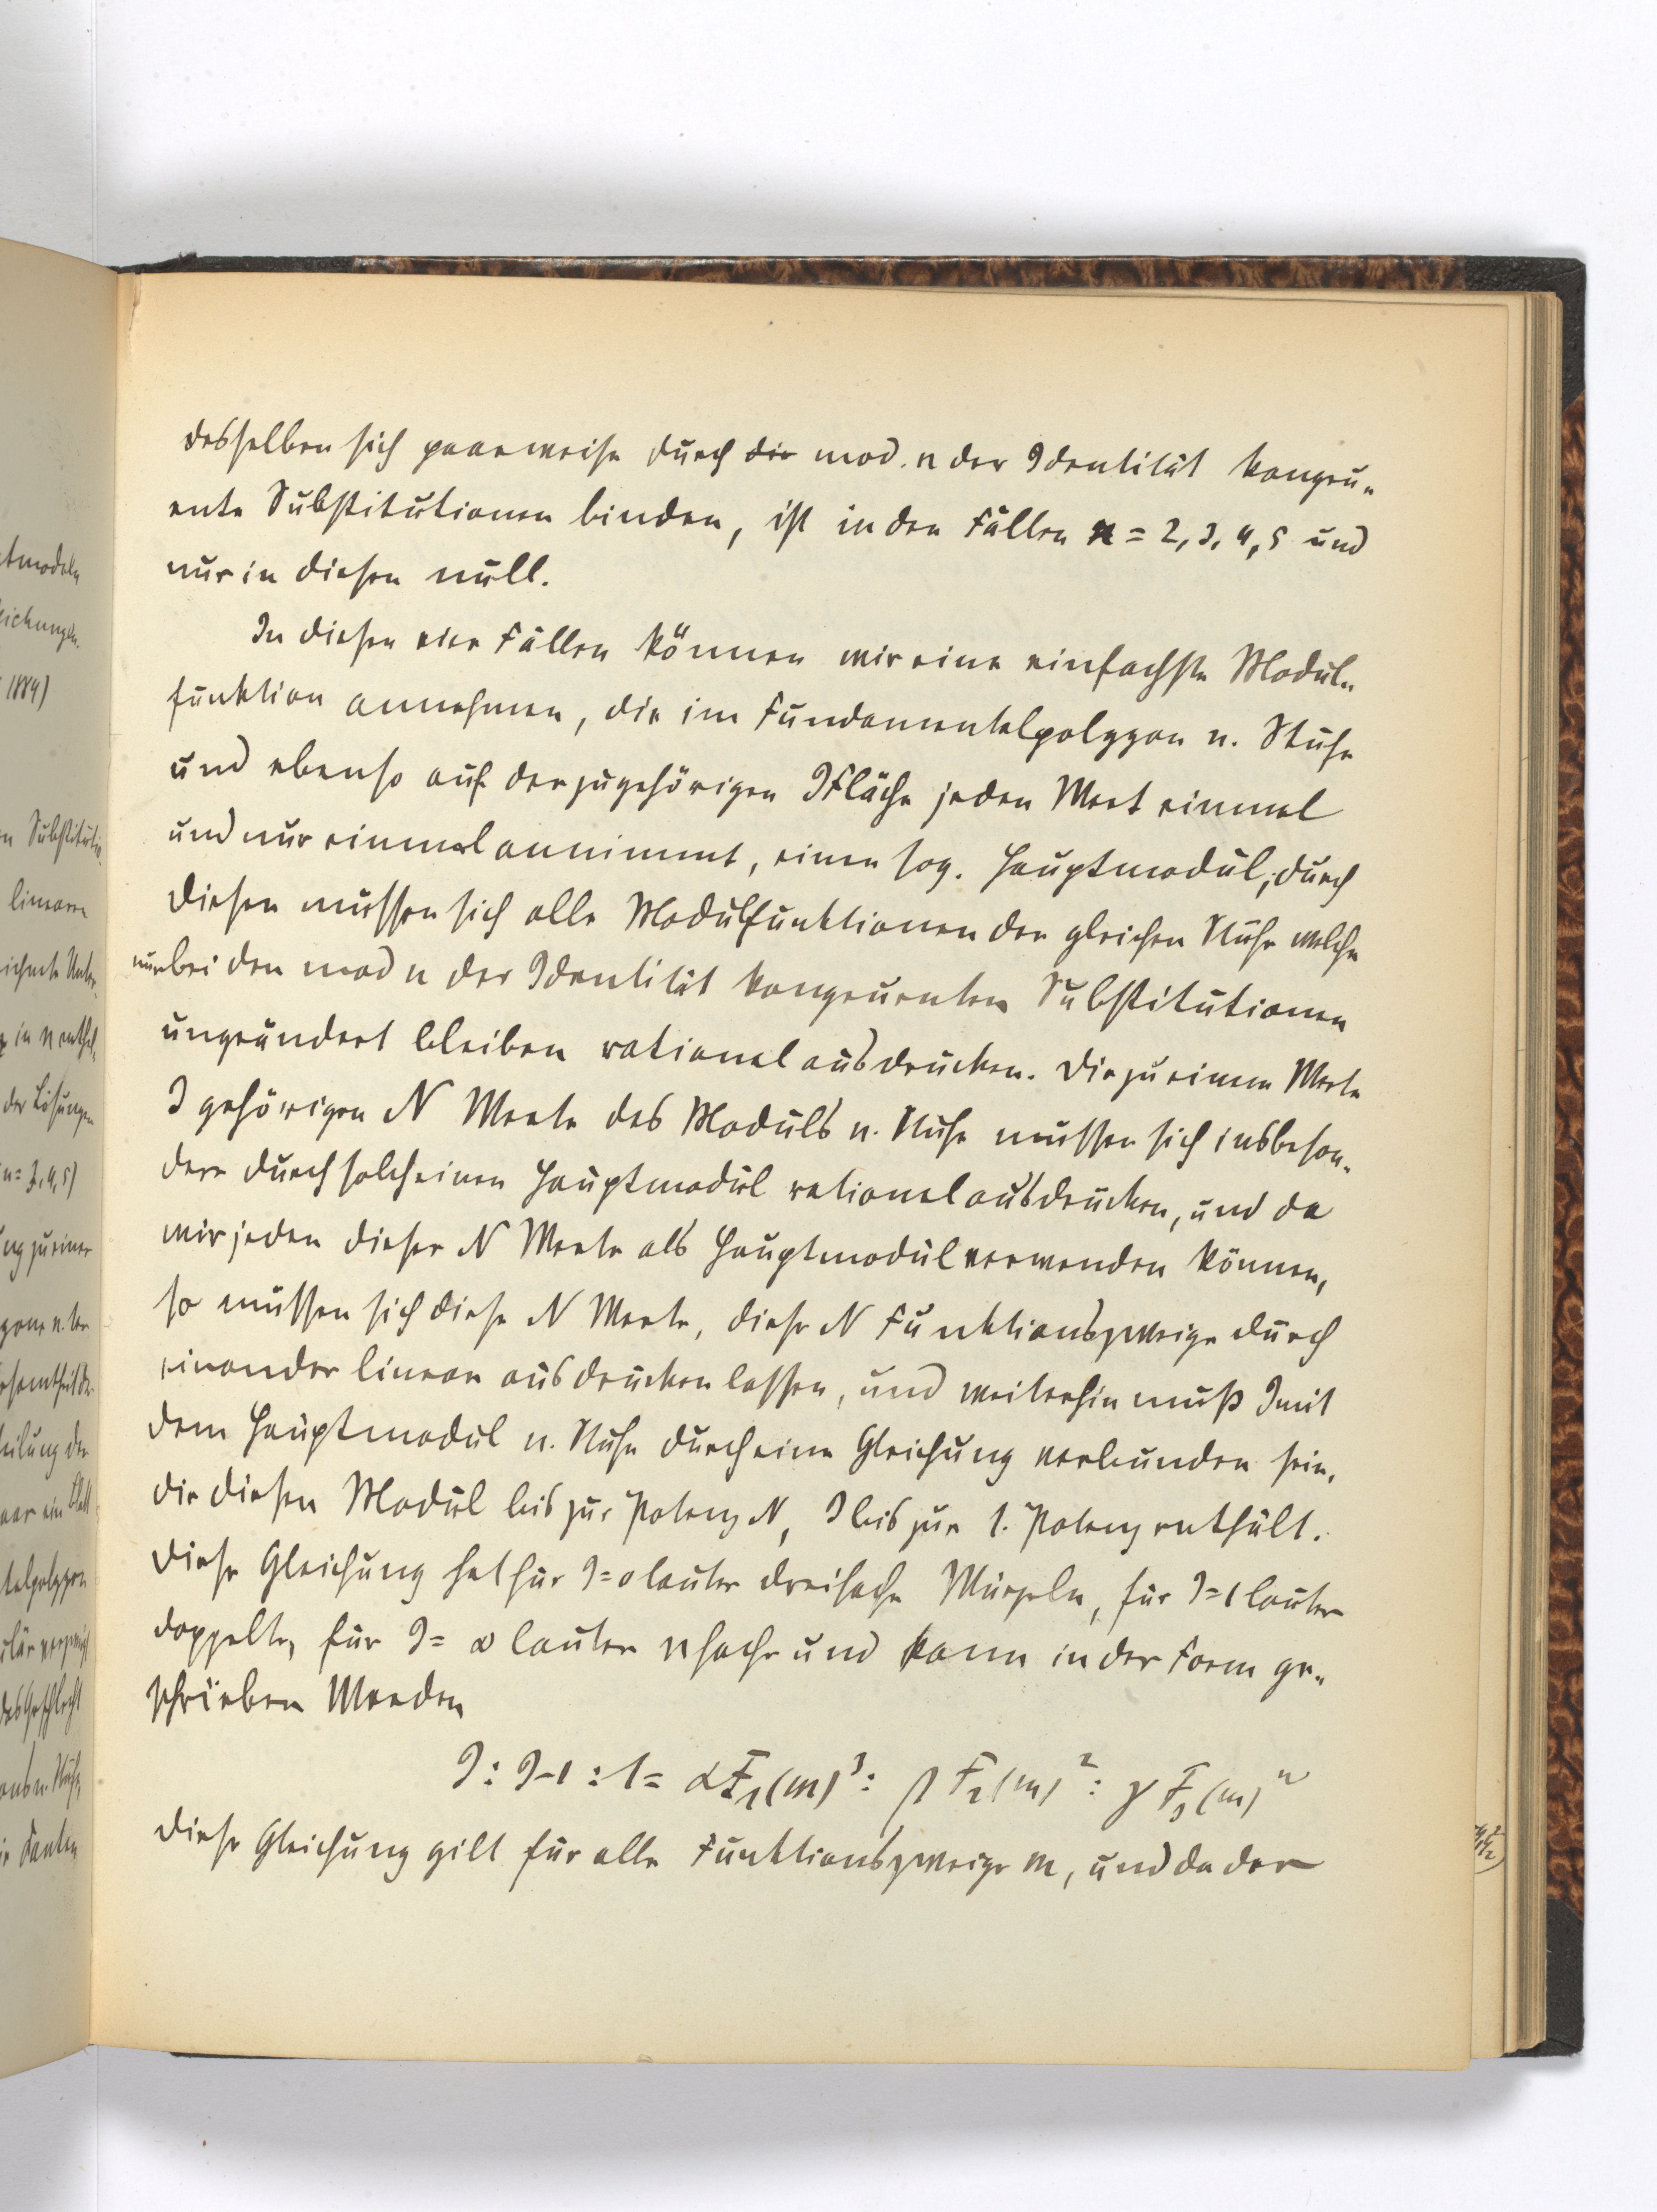 desselben sich paarweise durch die mod. n der Identität kongru-
ente Substitutionen binden, ist in den Fällen n = 2, 3, 4, 5 und
nur in diesen null.
In diesen vier Fällen können wir eine einfachste Modul-
funktion annehmen, die im Fundamentalpolygon n. Stufe
und ebenso auf der zugehörigen J Fläche jeden Wert einmal
und nur einmal annimmt, einen sog. Hauptmodul; durch
diesen müssen sich alle Modulfunktionen der gleichen Stufe welche
nur bei den mod n der Identität kongruenten Substitutionen
ungeändert bleiben rational ausdrücken. Die zu einem Werte
J gehörigen N Werte des Moduls n. Stufe müssen sich insbeson-
dere durch solch einen Hauptmodul rational ausdrücken, und da
wir jeden dieser N Werte als Hauptmodul verwenden können,
so müssen sich diese N Werte, diese N Funktionszweige durch
einander linear ausdrücken lassen, und weiterhin muß J mit
dem Hauptmodul n. Stufe durch eine Gleichung verbunden sein,
die diesen Modul bis zur Potenz N, J bis zur 1. Potenz enthält.
Diese Gleichung hat für J=0 lauter dreifache Wurzeln, für J=1 lauter
doppelte, für J= ∞ lauter nfache und kann in der Form ge-
schrieben werden
J : J-1 : 1 = αF₁(m)³ : βF₂(m)² : γF₃(m)ⁿ
Diese Gleichung gilt für alle Funktionszweige m, und da der